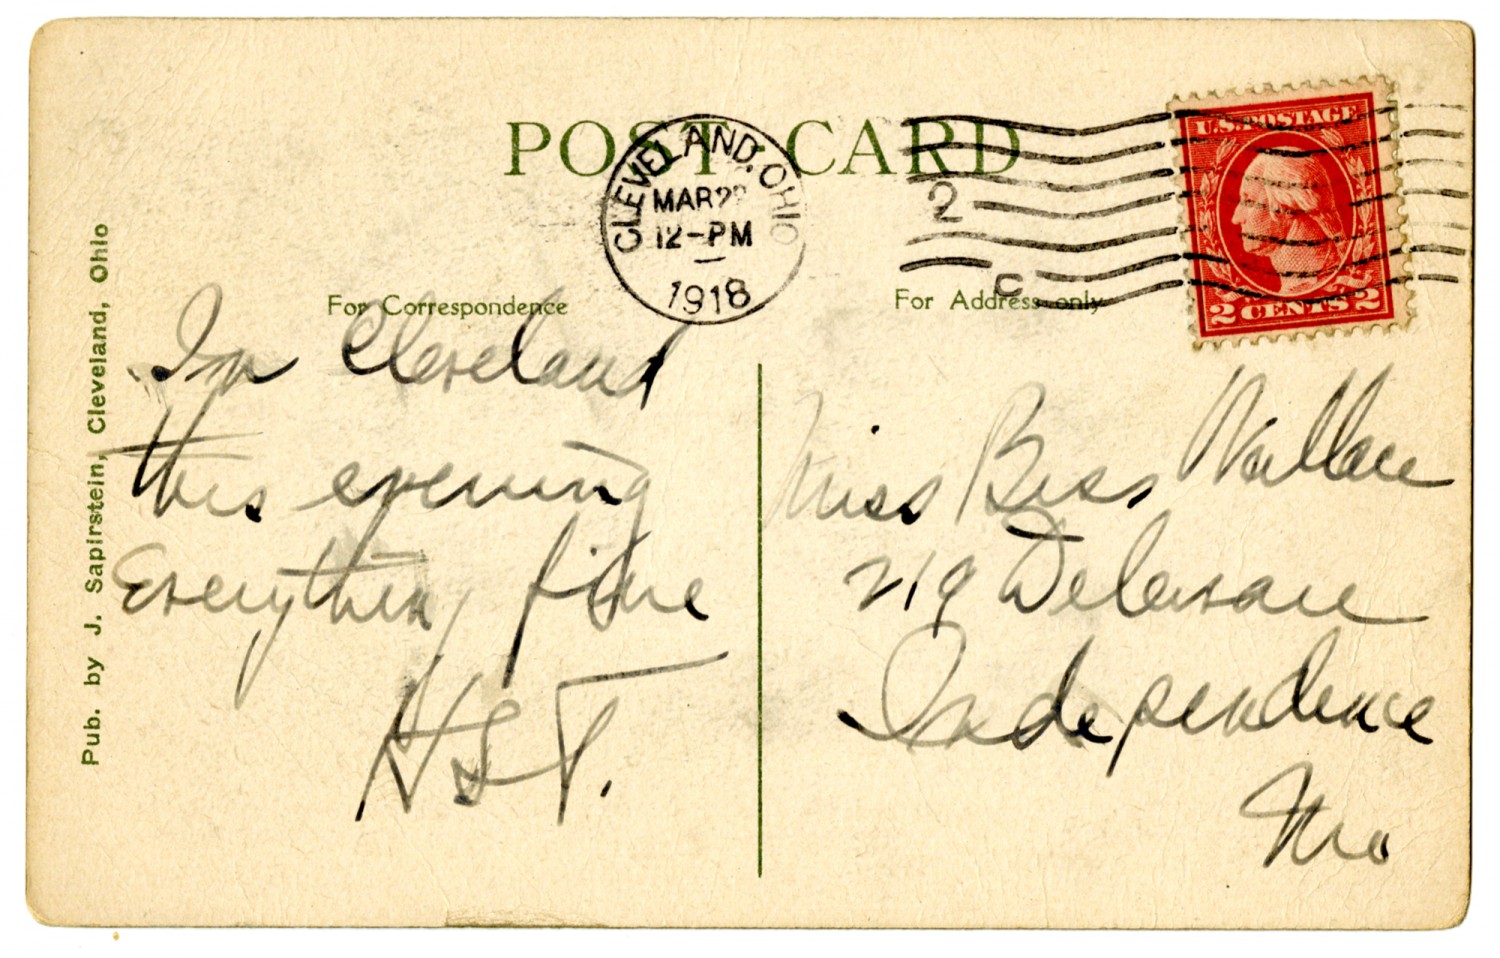 POST CARD
CLEVELAND, OHIO
MAR 22
12-PM
1918
2
C
U.S. POSTAGE
2 CENTS 2
For Correspondence
For Address only
Pub. by J. Sapirstein, Cleveland, Ohio
In Cleveland
this evening
Everything fine
HST.
Miss Bess Wallace
219 Delaware
Independence
Mo